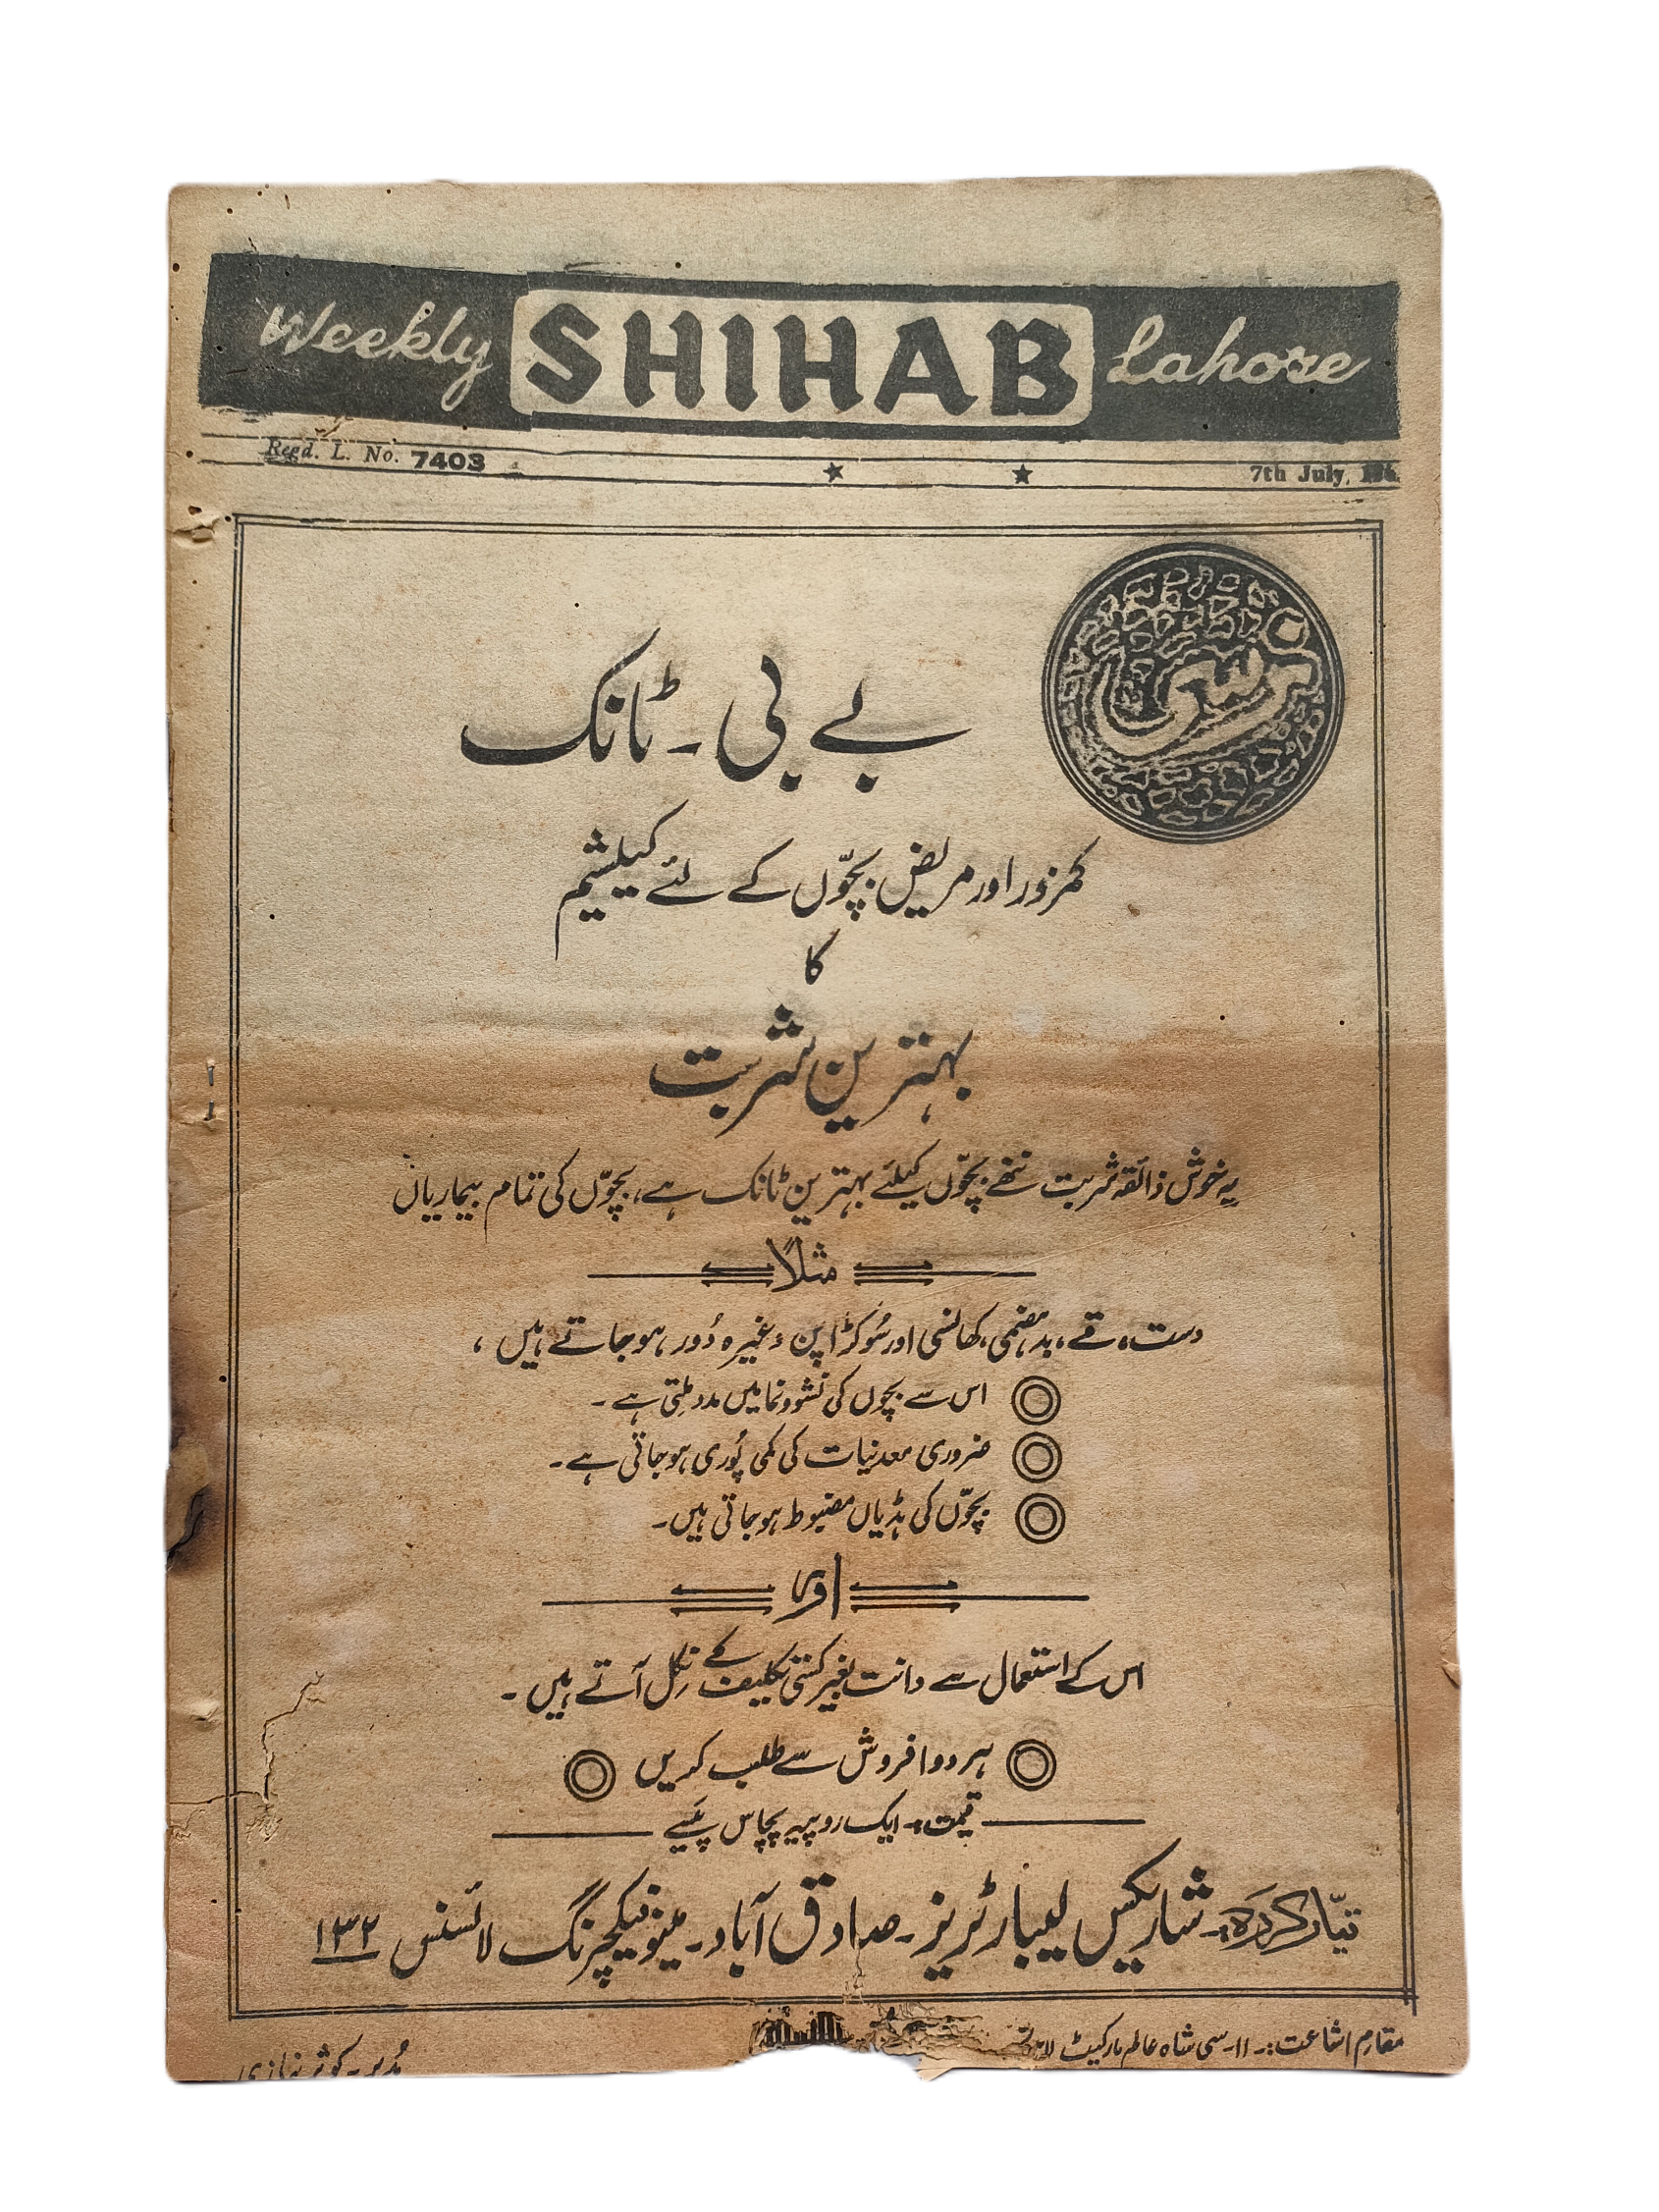 Weekly SHIHAB Lahore
Regd. L. No. 7403
7th July,
بے بی - ٹانک
کمزور اور مریض بچّوں کے لئے کیلشیم
کا
بہترین شربت
یہ خوش ذائقہ شربت ننھے بچّوں کیلئے بہترین ٹانک ہے، بچّوں کی تمام بیماریاں
مثلاً
دست، قے، بدہضمی، کھانسی اور سُوکڑاپن وغیرہ دُور ہو جاتے ہیں،
اس سے بچوں کی نشوونما میں مدد ملتی ہے۔
ضروری معدنیات کی کمی پُوری ہو جاتی ہے۔
بچّوں کی ہڈیاں مضبوط ہو جاتی ہیں۔
اور
اس کے استعمال سے دانت بغیر کسی تکلیف کے نکل آتے ہیں۔
ہر دوا فروش سے طلب کریں
قیمت:۔ ایک روپیہ پچاس پَیسے
تیّار کردہ:۔ شاریکس لیبارٹریز۔ صادق آباد۔ مینوفیکچرنگ لائسنس ۱۳۲
مقام اشاعت:۔ ۱۱۔سی شاہ عالم مارکیٹ لاہور
مُدیر۔ کوثر نیازی